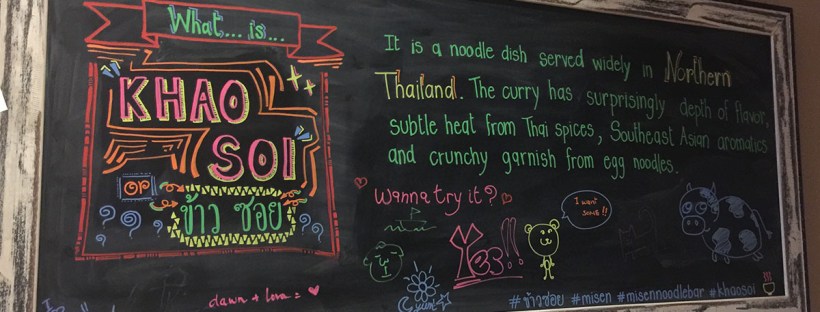 What... is...
KHAO
SOI
OR
ข้าว ซอย
It is a noodle dish served widely in Northern
Thailand. The curry has surprisingly depth of flavor,
subtle heat from Thai spices, Southeast Asian aromatics
and crunchy garnish from egg noodles.
Wanna try it?
Yes!!
I want
SOME!!
dawn + Lora =
#ข้าวซอย #misen #misennoodlebar #khaosoi